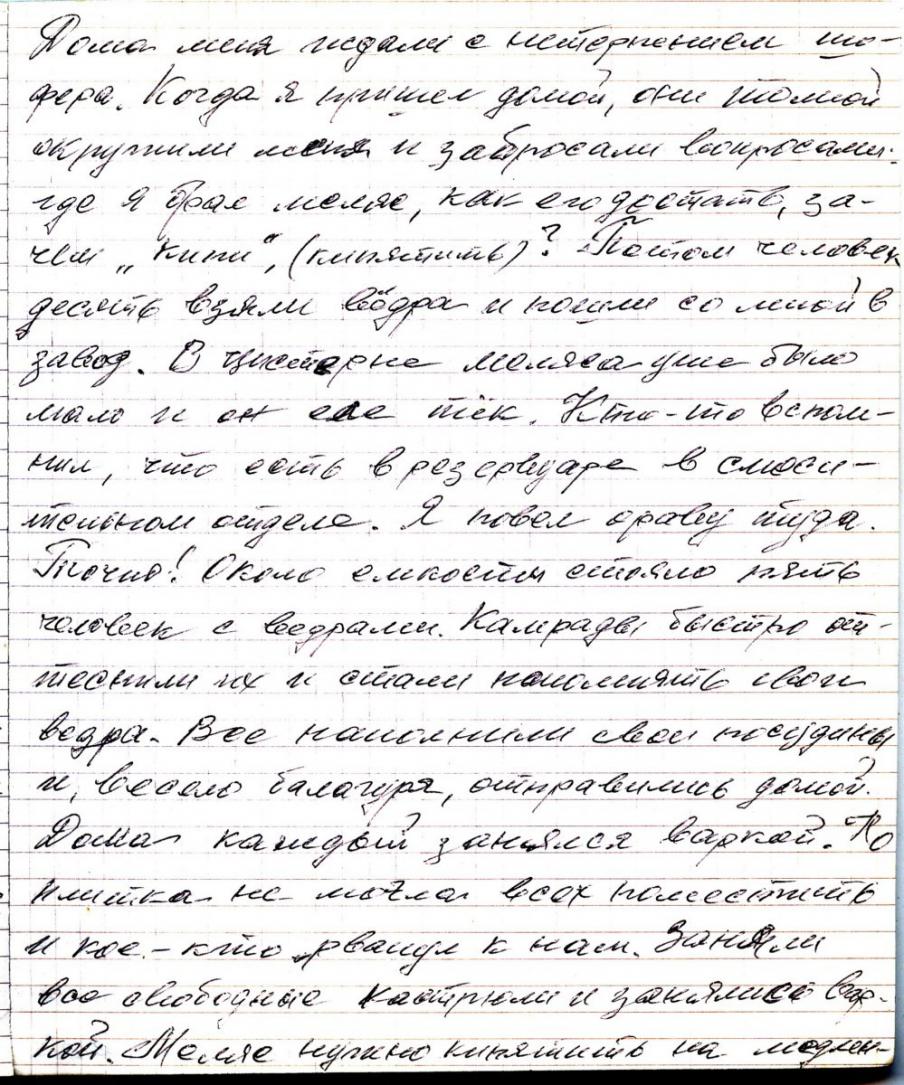 Дома меня ждали с нетерпением шо-
фера. Когда я пришел домой, они толпой
окружили меня и забросали вопросами:
где я брал меляс, как его достать, за-
чем „кипи“, (кипятить)? Потом человек
десять взяли вёдра и пошли со мной в
завод. В цистерне меляса уже было
мало и он еле тёк. Кто-то вспом-
нил, что есть в резервуаре в смеси-
тельном отделе. Я повел ораву туда.
Точно! Около емкости стояло пять
человек с ведрами. Камрады быстро от-
теснили их и стали наполнять свои
ведра. Все наполнили свои посудины
и, весело балагуря, отправились домой.
Дома каждый занялся варкой. Но
плитка не могла всех поместить
и кое-кто рванул к нам. Заняли
все свободные кастрюли и занялись вар-
кой. Меляс нужно кипятить на медлен-